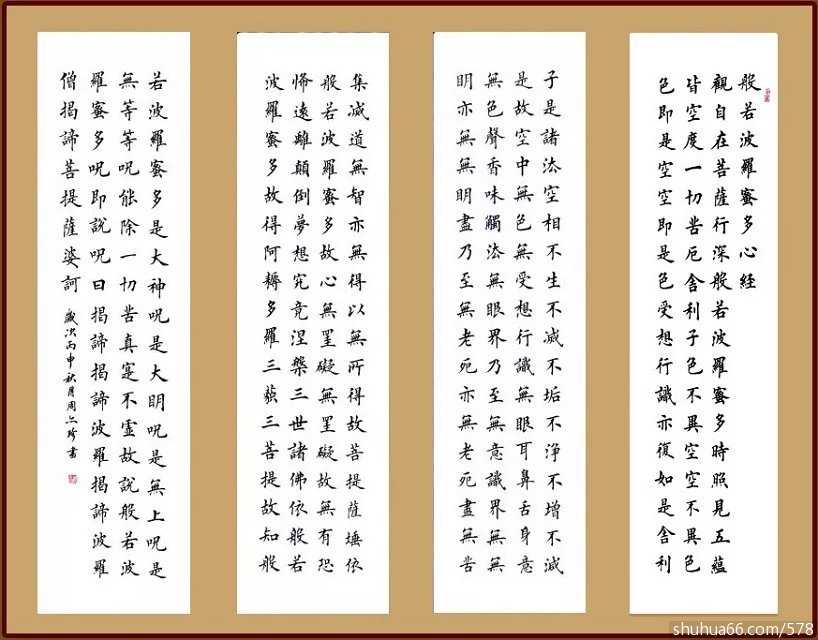 般若波羅蜜多心経
觀自在菩薩行深般若波羅蜜多時照見五蘊
皆空度一切苦厄舍利子色不異空空不異色
色即是空空即是色受想行識亦復如是舍利
子是諸法空相不生不滅不垢不浄不增不減
是故空中無色無受想行識無眼耳鼻舌身意
無色聲香味觸法無眼界乃至無意識界無無
明亦無無明盡乃至無老死亦無老死盡無苦
集滅道無智亦無得以無所得故菩提薩埵依
般若波羅蜜多故心無罣礙無罣礙故無有恐
怖遠離顛倒夢想究竟涅槃三世諸佛依般若
波羅蜜多故得阿耨多羅三藐三菩提故知般
若波羅蜜多是大神呪是大明呪是無上呪是
無等等呪能除一切苦真寔不虛故說般若波
羅蜜多呪即說呪曰揭諦揭諦波羅揭諦波羅
僧揭諦菩提薩婆訶 歲次丙申秋月周珍書
shuhua66.com/578